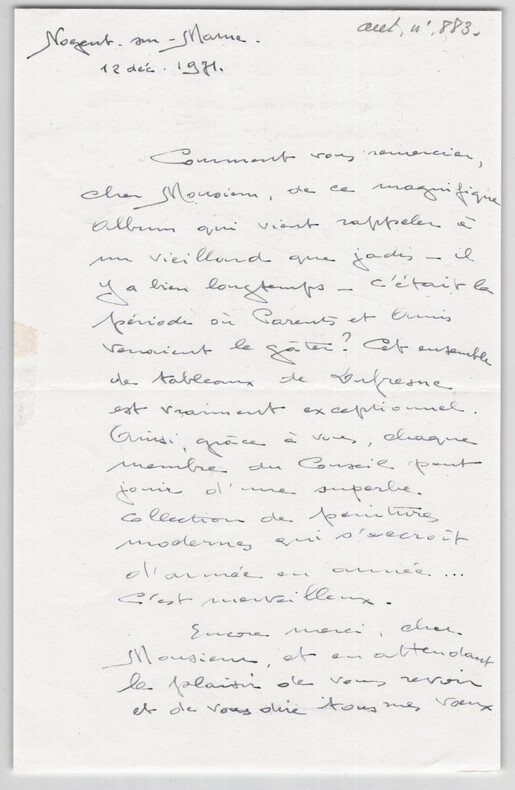 aut. n° 883.
Nogent-sur-Marne.
12 déc. 1971.
Comment vous remercier,
cher Monsieur, de ce magnifique
album qui vient rappeler à
un vieillard que jadis — il
y a bien longtemps — c'était la
période où Parents et Amis
venaient le gâter? Cet ensemble
de tableaux de Dufresne
est vraiment exceptionnel.
Ainsi, grâce à vous, chaque
membre du Conseil peut
jouir d'une superbe
collection de peintures
modernes qui s'accroît
d'année en année...
C'est merveilleux.
Encore merci, cher
Monsieur, et en attendant
le plaisir de vous revoir
et de vous dire tous mes vœux